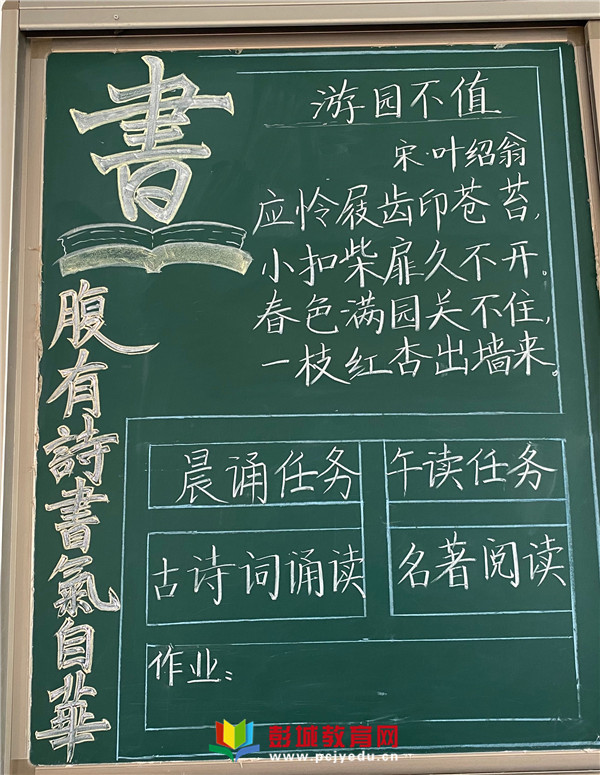 書
腹有詩書氣自華
游园不值
宋·叶绍翁
应怜屐齿印苍苔,
小扣柴扉久不开。
春色满园关不住,
一枝红杏出墙来。
晨诵任务
午读任务
古诗词诵读
名著阅读
作业：
彭城教育网
www.pcjyedu.cn